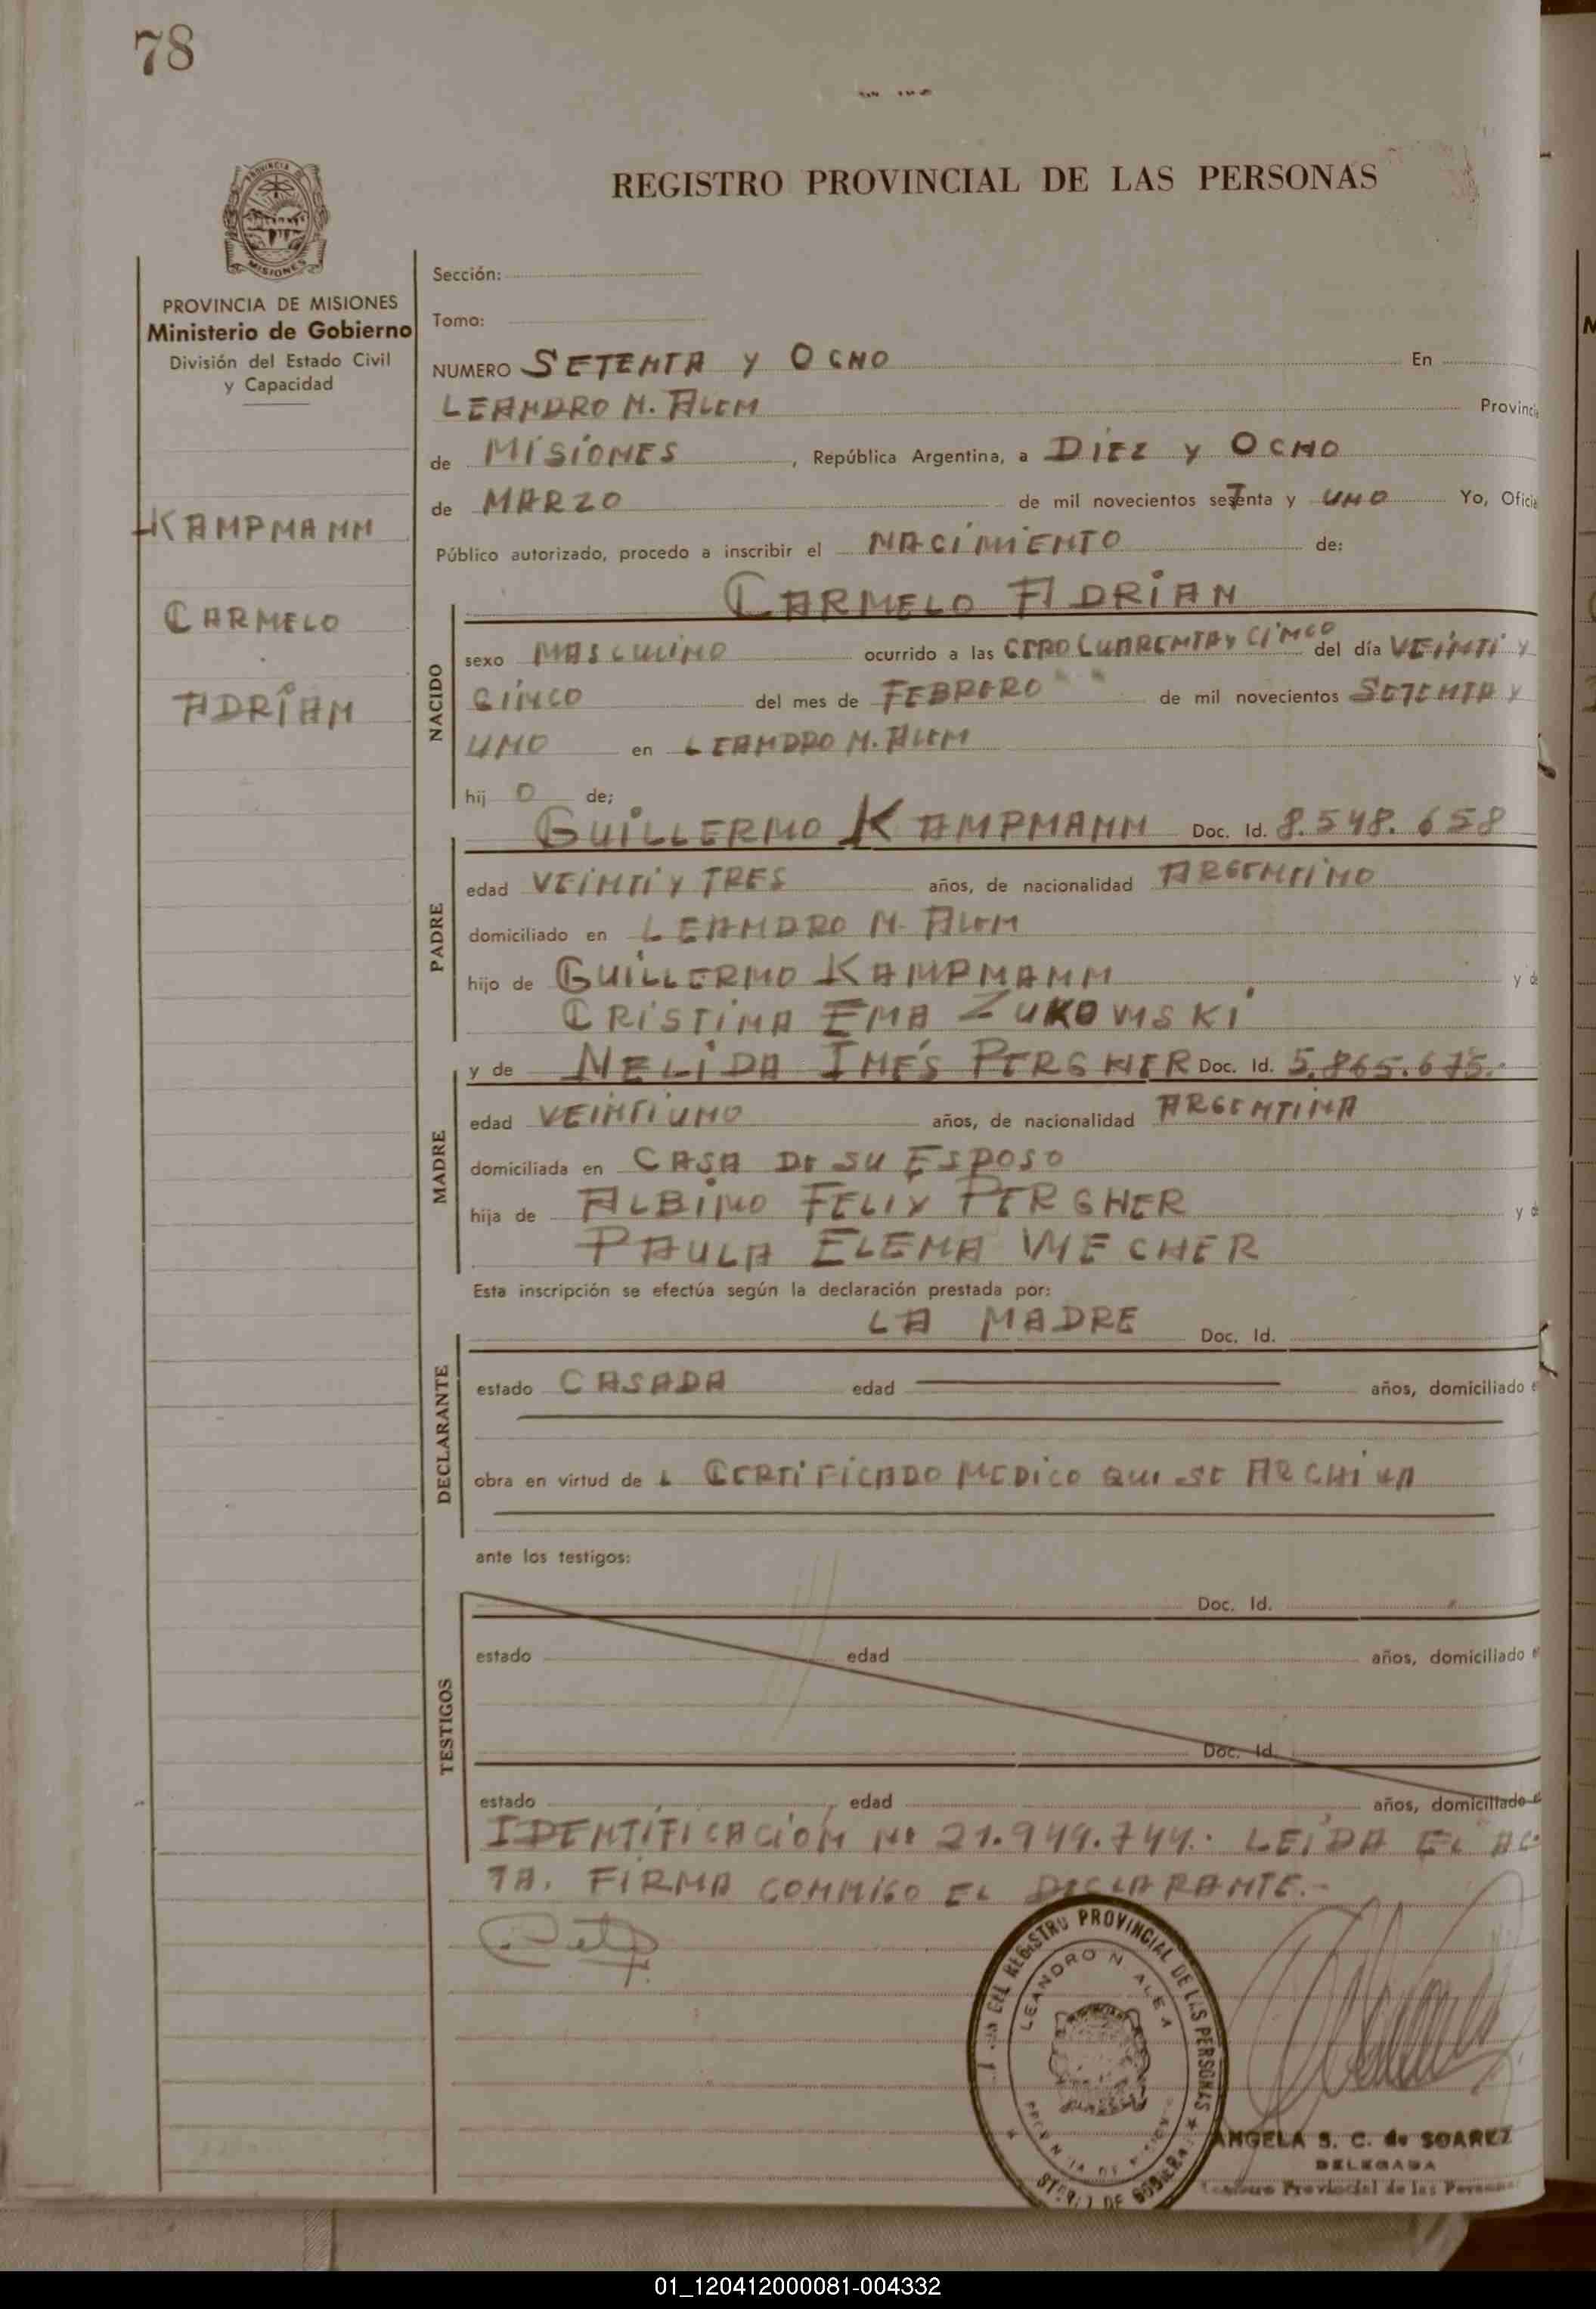 78
REGISTRO PROVINCIAL DE LAS PERSONAS
PROVINCIA DE MISIONES
Ministerio de Gobierno
División del Estado Civil
y Capacidad
KAMPMANN
CARMELO
ADRIAN
Sección:
Tomo:
NUMERO SETENTA Y OCHO En
LEANDRO N. ALEM Provincia
de MISIONES, República Argentina, a DIEZ Y OCHO
de MARZO de mil novecientos setenta y UNO Yo, Oficia
Público autorizado, procedo a inscribir el NACIMIENTO de:
CARMELO ADRIAN
NACIDO
sexo MASCULINO ocurrido a las CERO CUARENTA Y CINCO del día VEINTI Y
CINCO del mes de FEBRERO de mil novecientos SETENTA Y
UNO en LEANDRO N. ALEM
hij O de;
GUILLERMO KAMPMANN Doc. Id. 8.548.658
PADRE
edad VEINTI Y TRES años, de nacionalidad ARGENTINO
domiciliado en LEANDRO N. ALEM
hijo de GUILLERMO KAMPMANN y de
CRISTINA EMA ZUKOWSKI
MADRE
y de NELIDA INÉS PERGHER Doc. Id. 5.865.675.-
edad VEINTIUNO años, de nacionalidad ARGENTINA
domiciliada en CASA DE SU ESPOSO
hija de ALBINO FELIX PERGHER y d
PAULA ELENA WECHER
Esta inscripción se efectúa según la declaración prestada por:
LA MADRE Doc. Id.
DECLARANTE
estado CASADA edad años, domiciliado e
obra en virtud de L CERTIFICADO MEDICO QUE SE ARCHIVA
ante los testigos:
TESTIGOS
Doc. Id.
estado edad años, domiciliado e
Doc. Id.
estado edad años, domiciliado e
IDENTIFICACIÓN Nº 21.949.744.- LEÍDA EL AC
TA. FIRMA CONMIGO EL DECLARANTE.-
DEL REGISTRO PROVINCIAL DE LAS PERSONAS
LEANDRO N. ALEM
ANGELA S. C. de SOAREZ
DELEGADA
Registro Provincial de las Personas
01_120412000081-004332